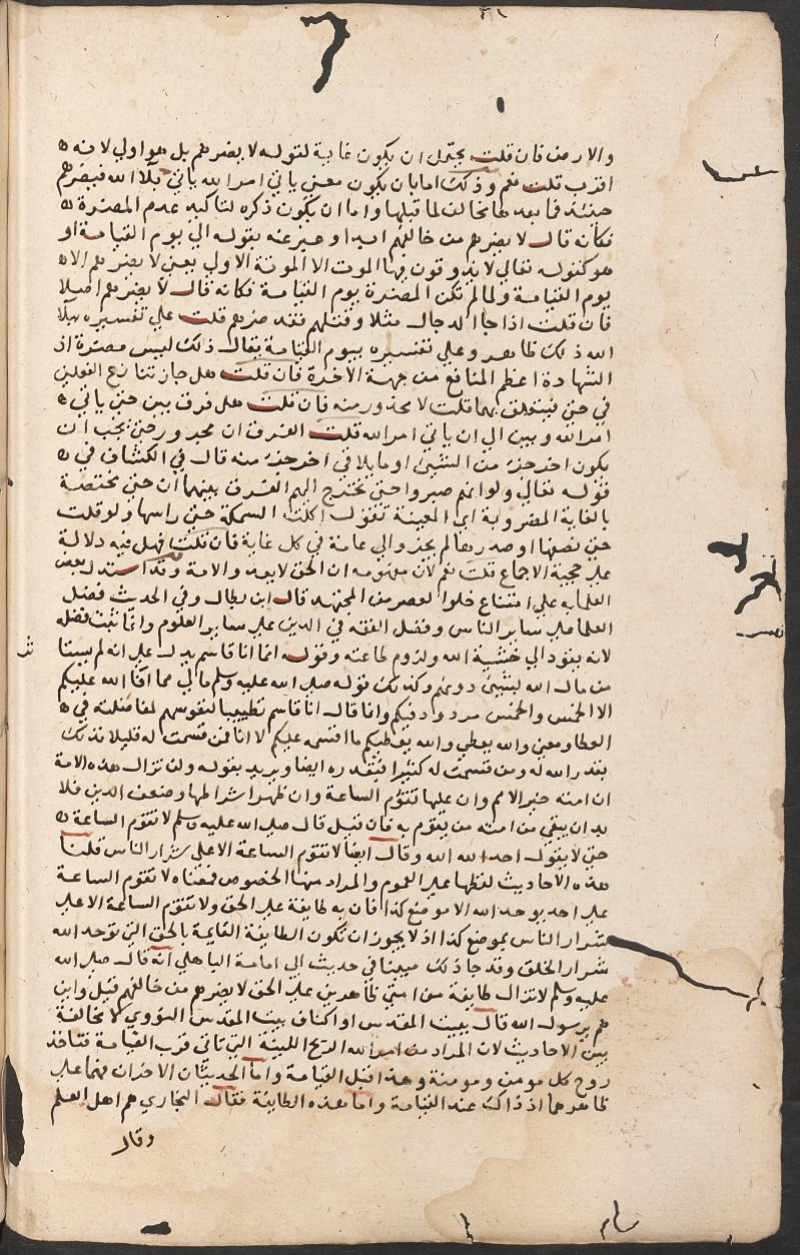 والارض فان قلت يحتمل ان يكون غاية لقوله لا يضرهم بل هو اولى لانه
اقرب قلت نعم وذلك اما بان يكون معنى ياتي امر الله ياتي بلاء الله فيضرهم
حينئذ فما بعدها مخالف لما قبلها واما ان يكون ذكره لتاكيد عدم المضرة
فكانه قال لا يضرهم من خالفهم ابدا وعبر عنه بقوله الى يوم القيامة او
هو كقوله تعالى لا يذوقون فيها الموت الا الموتة الاولى يعني لا يضرهم الا
يوم القيامة ولما لم تكن المضرة يوم القيامة فكانه قال لا يضرهم اصلا
فان قلت اذا جا الدجال مثلا وقتلهم فقد ضرهم قلت على تفسيره ببلاء
الله ذلك ظاهر وعلى تفسيره بيوم القيامة يقال ذلك ليس مضرة اذ
الشهادة اعظم المنافع من جهة الاخرة فان قلت هل جاز تنازع الفعلين
في حتى فيتعلق بهما قلت لا محذور منه فان قلت هل فرق بين حتى ياتي
امر الله وبين الى ان ياتي امر الله قلت الفرق ان مجرور حتى يجب ان
يكون اخر جزء من الشيء او ما يلاقي اخر جزء منه قال في الكشاف في
قوله تعالى ولو انهم صبروا حتى تخرج اليهم الفرق بينهما ان حتى مختصة
بالغاية المضروبة اى المعينة تقول اكلت السمكة حتى راسها ولو قلت
حتى نصفها او صدرها لم يجز والى عامة في كل غاية فان قلت فهل فيه دلالة
على حجية الاجماع قلت نعم لان مفهومه ان الحق لا يعدو الامة وقد استدل بعض
العلما به على امتناع خلو العصر من المجتهد قال ابن بطال وفي الحديث فضل
العلما على ساير الناس وفضل الفقه في الدين على ساير العلوم وانما ثبت فضله
لانه يقود الى خشية الله ولزوم طاعته وقوله انما انا قاسم يدل على انه لم يستا
من مال الله بشيء دونهم وكذلك قوله صلى الله عليه وسلم ما لي مما افا الله عليكم
الا الخمس والخمس مردود فيكم وانا قال انا قاسم تطييبا لنفوسهم لمفاضلته في
العطا ومعنى والله يعطي والله يعطيكم ما اقسمه عليكم لا انا فمن قسمت له قليلا فذلك
بقدر الله له ومن قسمت له كثيرا فبقدره ايضا ويريد بقوله ولن تزال هذه الامة
ان امته خير الامم وان عليها تقوم الساعة وان ظهر اشراطها وضعف الدين فلا
بد ان يبقى من امته من يقوم به فان قيل قال صلى الله عليه وسلم لا تقوم الساعة
حتى لا يقول احد الله الله وقال ايضا لا تقوم الساعة الا على شرار الناس قلنا
هذه الاحاديث لفظها على العموم والمراد منها الخصوص فمعناه لا تقوم الساعة
على احد يوحد الله الا موضع كذا فان به طايفة على الحق ولا تقوم الساعة الا على
شرار الناس بموضع كذا اذ لا يجوز ان تكون الطايفة القايمة بالحق التي توحد الله
شرار الخلق وقد جا ذلك مبينا في حديث ابي امامة الباهلي انه قال صلى الله
عليه وسلم لا تزال طايفة من امتي ظاهرين على الحق لا يضرهم من خالفهم قيل واين
هم يرسول الله قال ببيت المقدس او اكناف بيت المقدس النووي لا مخالفة
بين الاحاديث لان المراد من امر الله الريح اللينة التي تاتي قرب القيامة فتاخذ
روح كل مومن ومومنة وهذا قبل القيامة واما الحديثان الاخران فهما على
ظاهرهما اذ ذاك عند القيامة واما هذه الطايفة فقال البخاري هم اهل العلم
وقال